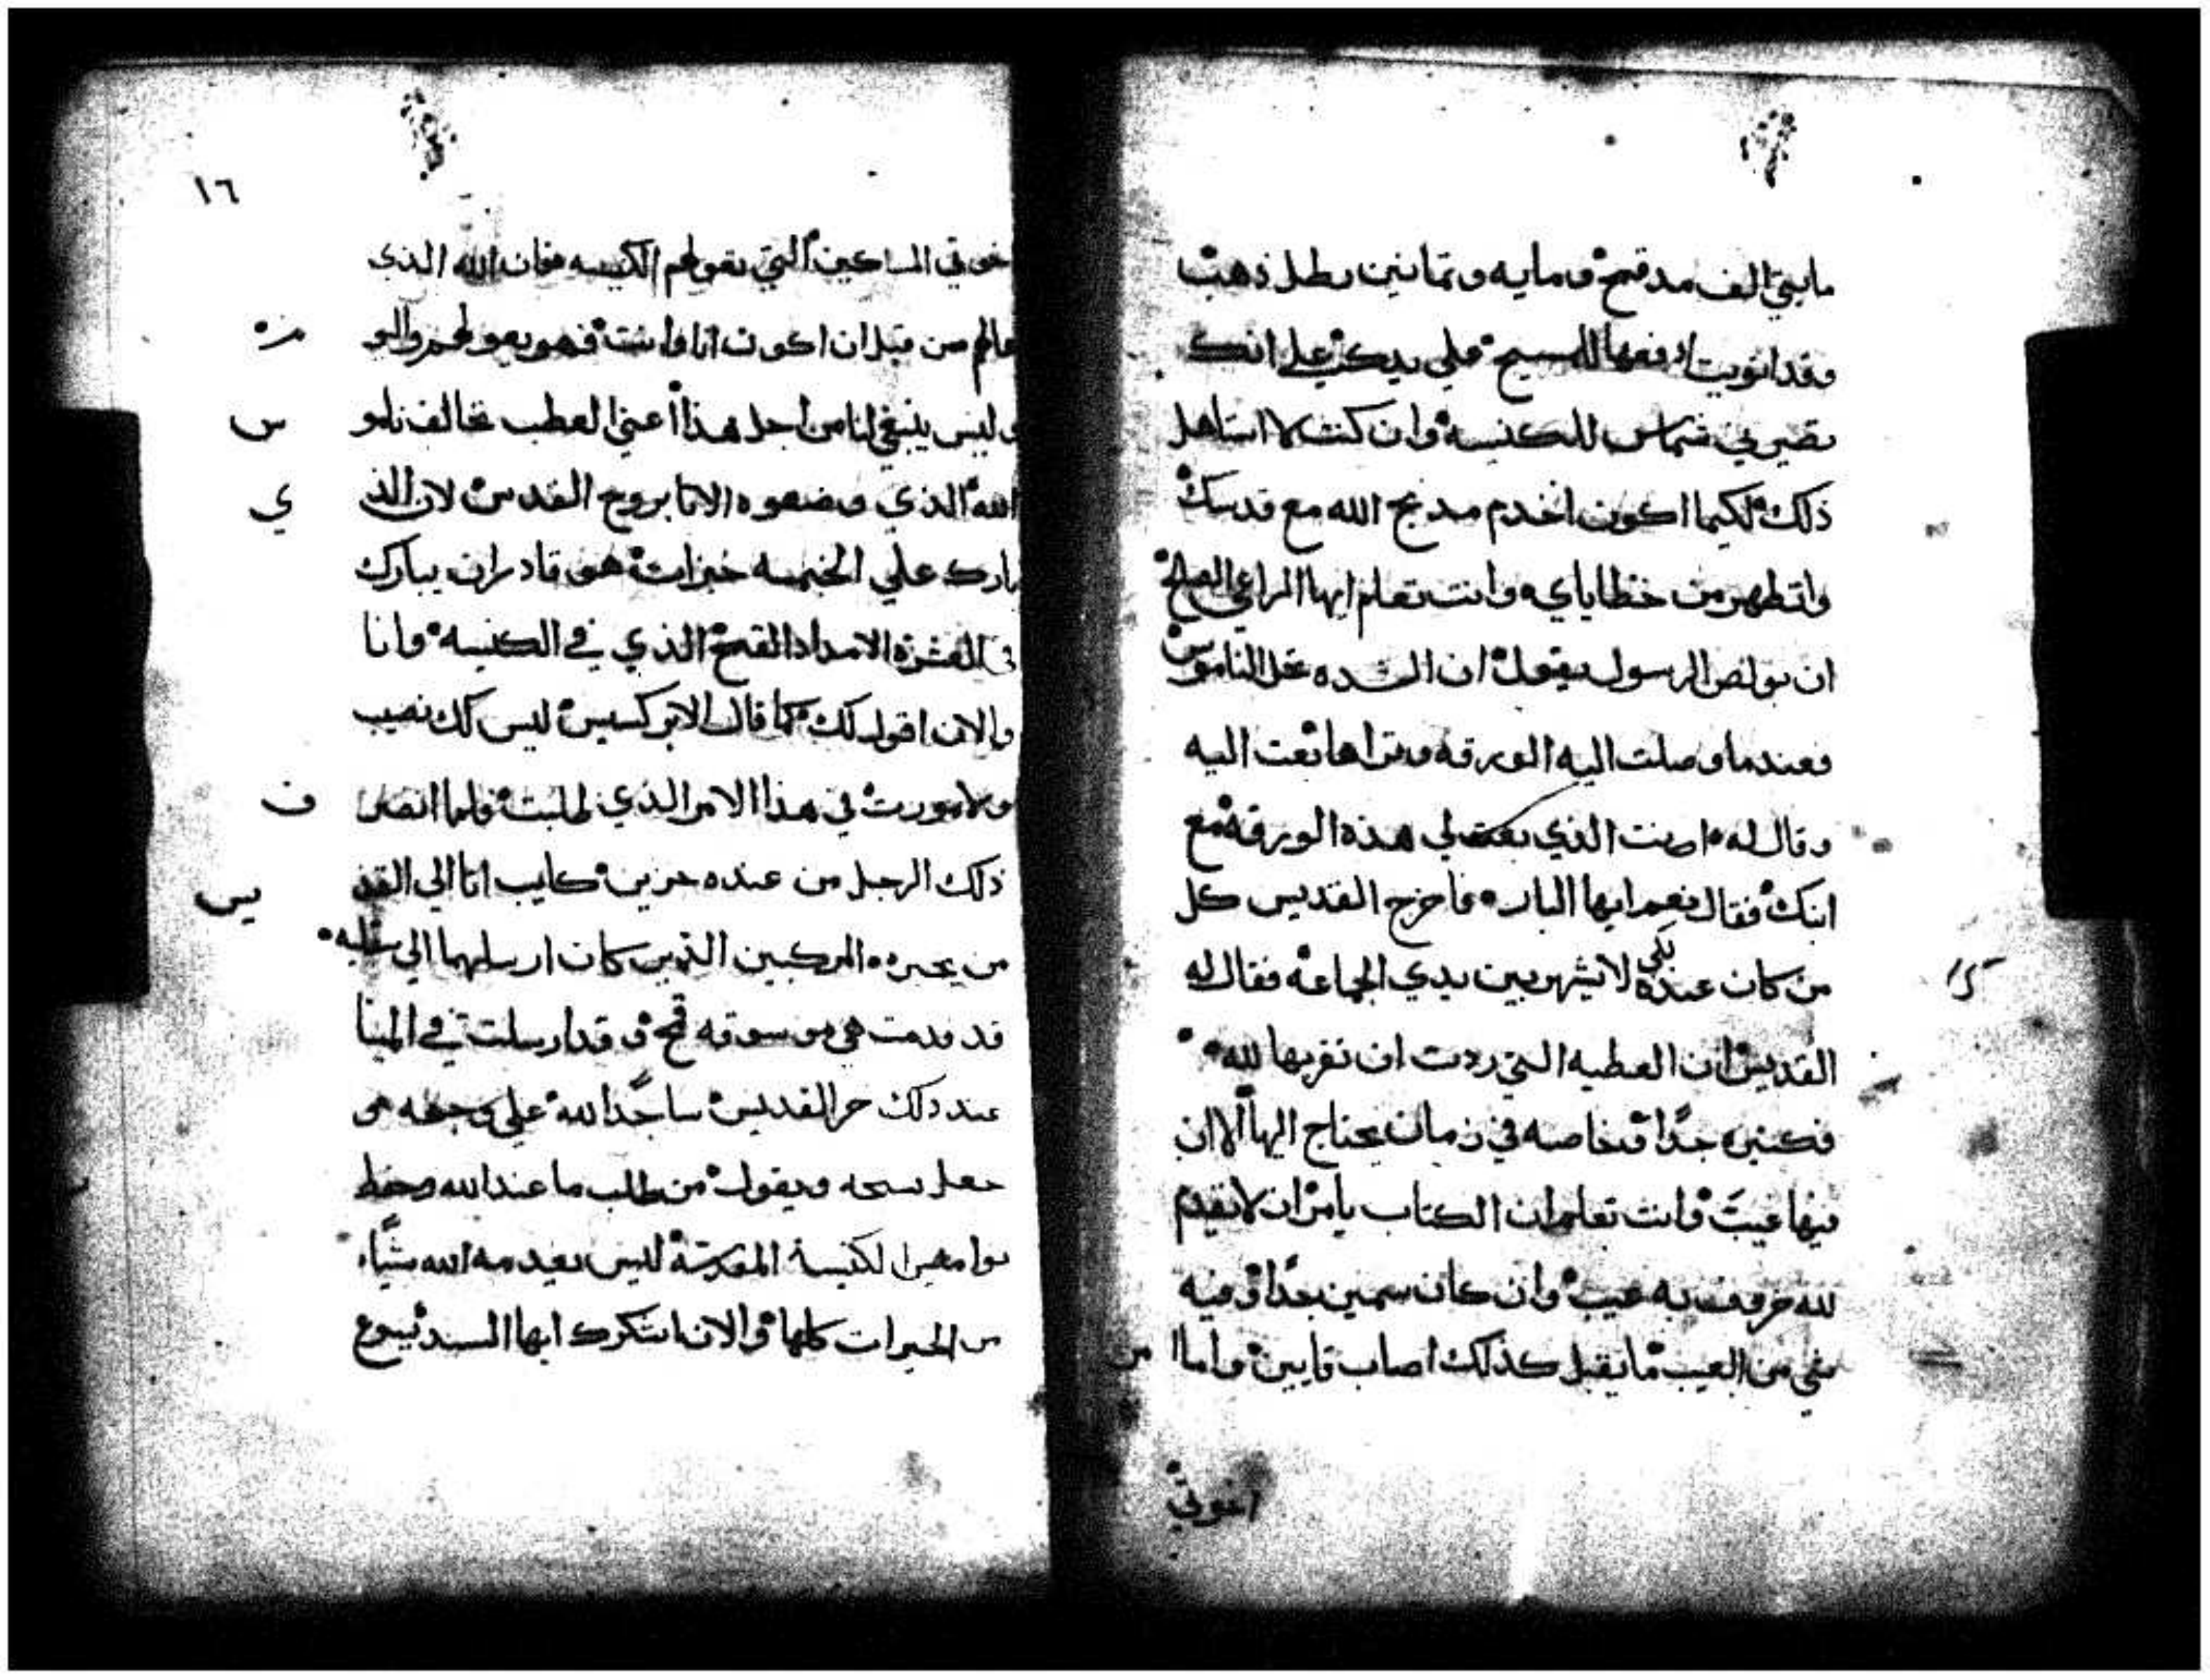 مايتي الف مد قمح ومايه وثمانين رطل ذهب
وقد نويت ادفعها للمسيح علي يديك علي انك
تصيرني شماس للكنيسه وان كنت لا استاهل
ذلك لكيما اكون اخدم مدبح الله مع قدسك
واتطهر من خطاياي وانت تعلم ايها الراعي الصالح
ان بولص الرسول يقول ان الشده تحل الناموس
فعندما وصلت اليه الورقه وقراها بعت اليه
وقال له انت الذي بعت لي هذه الورقه مع
ابنك فقال نعم ايها البار فاخرج القديس كل
من كان عنده لكي لا يشهر بين يدي الجماعه فقال له
القديس ان العطيه التي ردت ان تقربها لله
فكثيره جدًا وخاصه في زمان يحتاج اليها الا ان
فيها عيب وانت تعلم ان الكتاب يامر ان لا يقدم
لله خروف به عيب وان كان سمين جدًا وفيه
شي من العيب ما يقبل كذلك اصاب قايين واما من
اخوتي
١٦
اخوتي المساكين التي تقولهم الكنيسه فان الله الذي
عالهم من قبل ان اكون انا وانت فهو يعولهم والو
من
وليس ينبغي لنا من اجل هذا اعني العطب نخالف نامو
س
الله الذي وضعوه الابا بروح القدس لان الذ
ي
بارك علي الخمسه خبزات هو قادر ان يبارك
في العشرة الامداد القمح الذي في الكنيسه وانا
والان اقول لك كما قال الابركسيس ليس لك نصيب
ولا مورت في هذا الامر الذي طلبت فلما انصر
ف
ذلك الرجل من عنده حزين كايب اتا الي القد
يس
من يخبره المركبين الذين كان ارسلهما الي
قد قدمت هي موسوقه قمح وقد ارسلت في المينا
عند ذلك خر القديس ساجدًا لله علي وجهه
جعل يسبحه ويقول من طلب ما عند الله وحفظ
اوامر الكنيسة المقدسة ليس يعدمه الله شيًا
من الخيرات كلها والان اشكرك ايها السيد يسوع